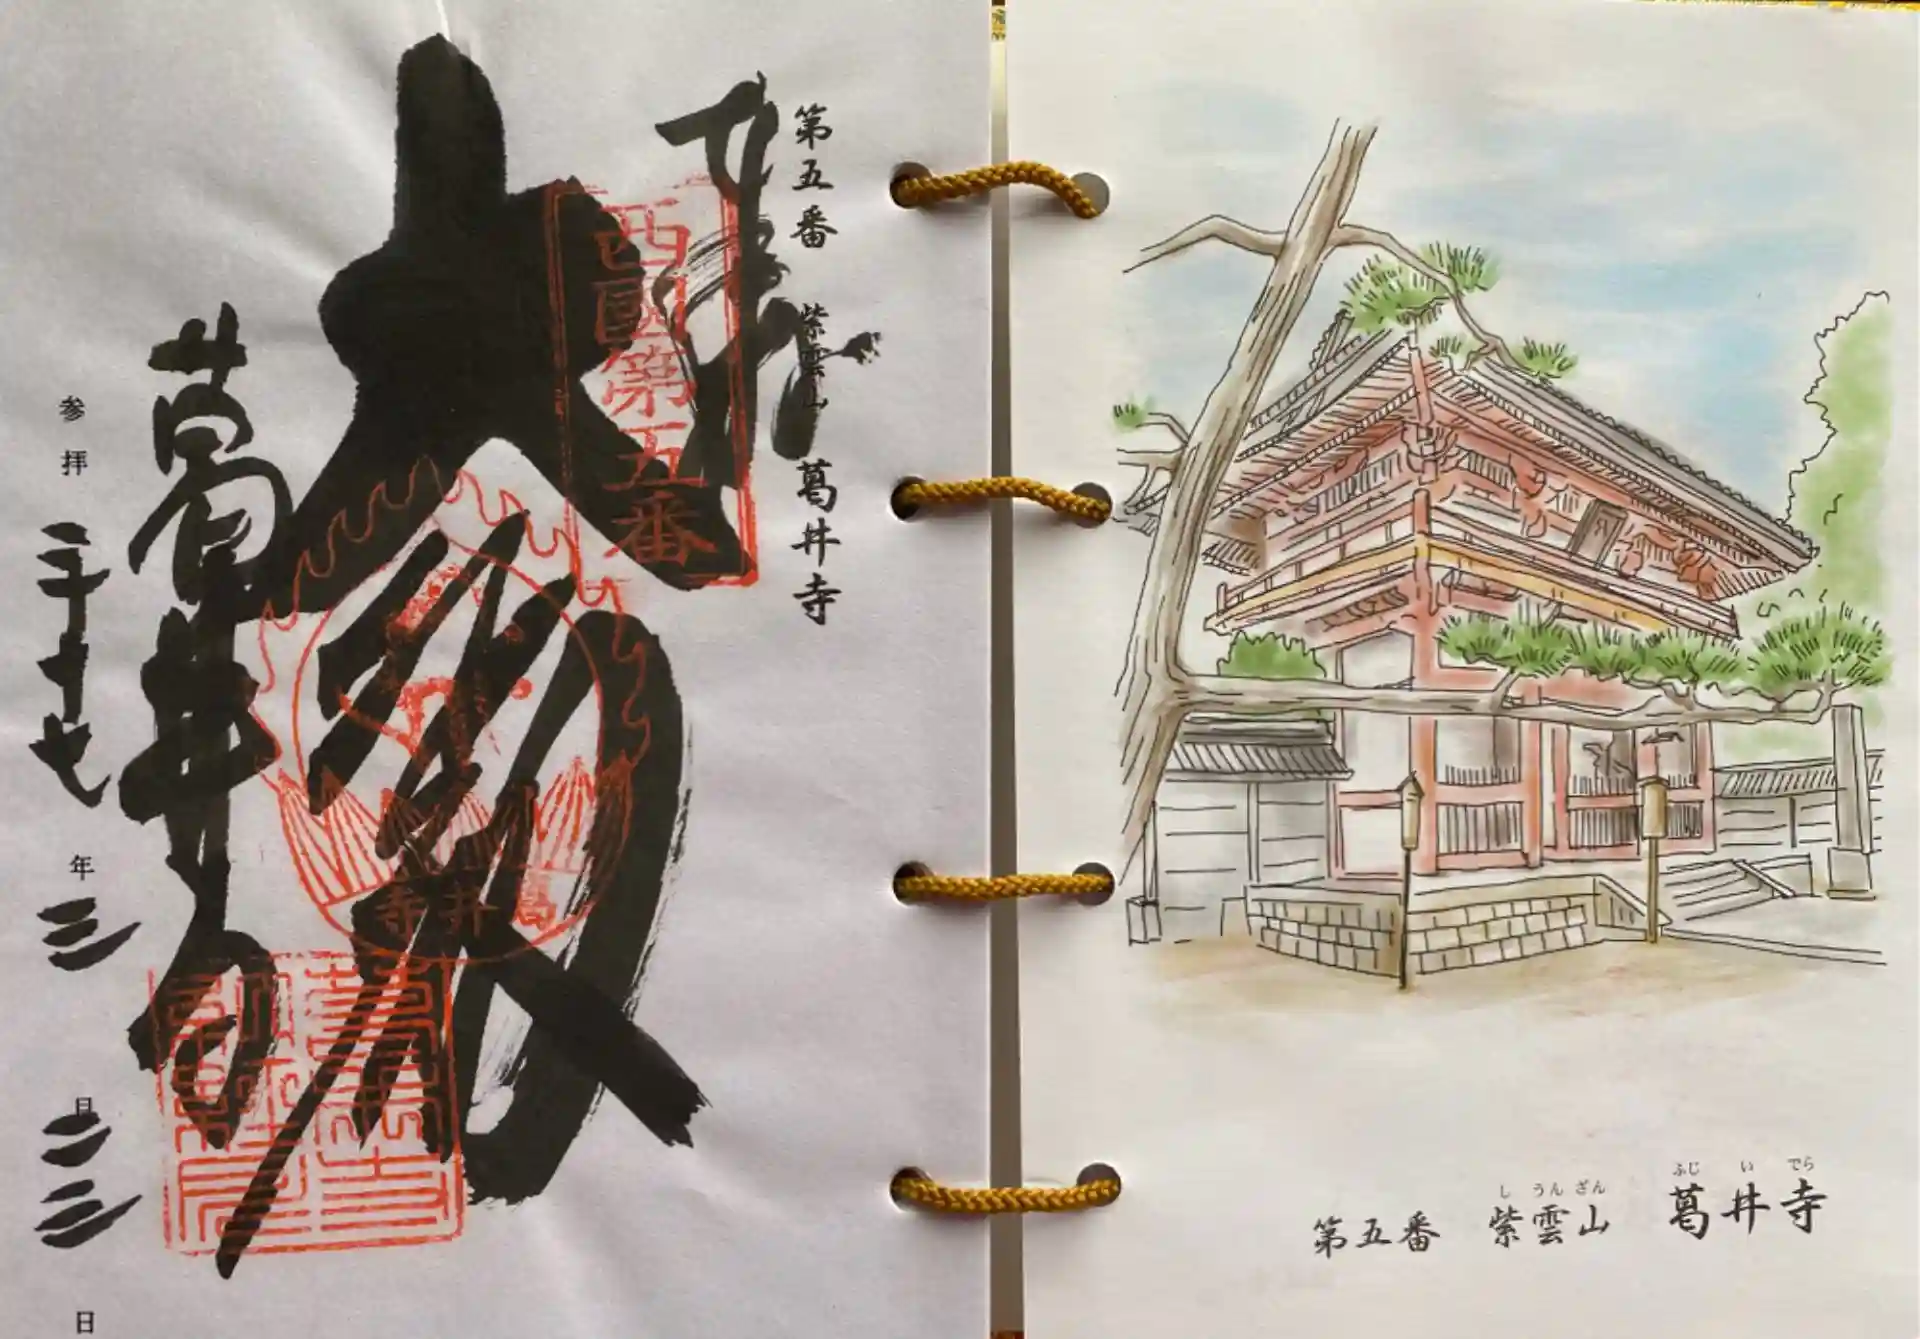 第五番 紫雲山 葛井寺
奉拝
西國第五番
大悲殿
葛井寺
葛井寺
参拝 二千十七年三月二三日
第五番 紫雲山 葛井寺
しうんざん ふじいでら